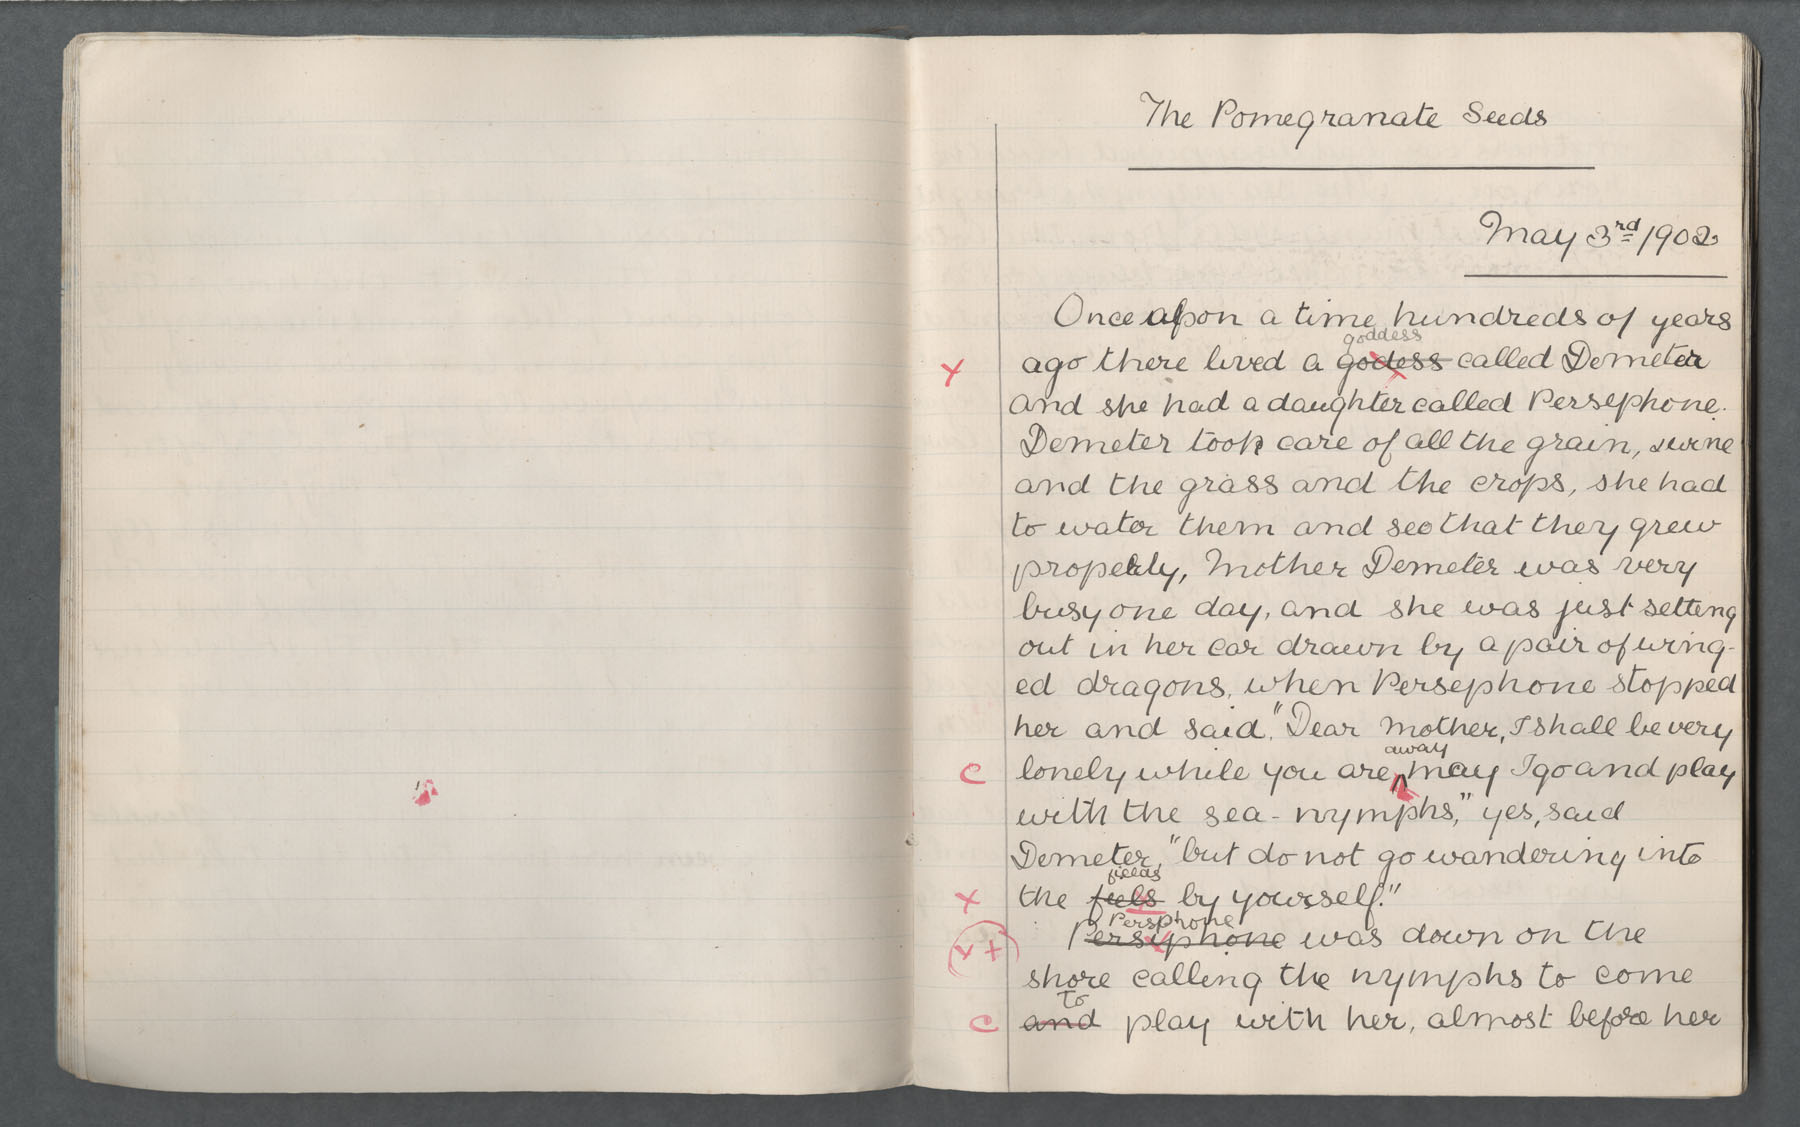 The Pomegranate Seeds
May 3rd 1902
Once upon a time hundreds of years
goddess
ago there lived a godess called Demeter
and she had a daughter called Persephone.
Demeter took care of all the grain,
and the grass and the crops, she had
to water them and see that they grew
properly, Mother Demeter was very
busy one day, and she was just setting
out in her car drawn by a pair of wing-
ed dragons, when Persephone stopped
her and said, "Dear Mother, I shall be very
away
lonely while you are ^ may I go and play
with the sea-nymphs," yes, said
Demeter, "but do not go wandering into
fields
the fiels by yourself."
Persphone
Persiphone was down on the
shore calling the nymphs to come
to
and play with her, almost before her
x
c
x
x +
c